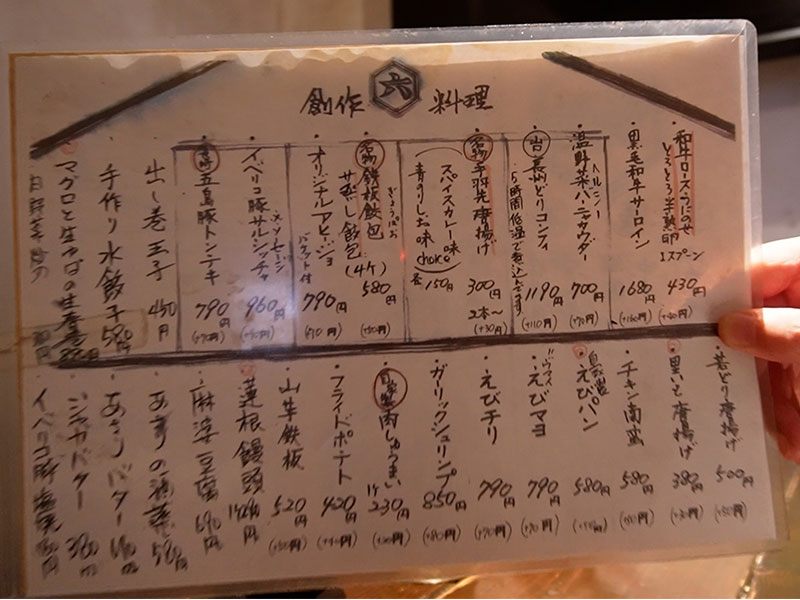 創作 六 料理
・和牛ロースつにのせ
とろとろ半熟卵
1スプーン
430円
(+40円)
・黒毛和牛サーロイン
1680円
(+160円)
・温野菜バーニャカウダー
700円
(+70円)
長州どりコンフィ
5時間低温で煮込みます
1190円
(+110円)
名物 手羽先唐揚げ
300円
2本〜
(+30円)
スパイスカレー味
青のりしお味
choice
各150円
名物 鉄板餃包
ぎょうぱお
サだし餃包(4ケ)
580円
(+50円)
・オリジナルアヒージョ
バケット付
790円
・イベリコ豚サルシッチャ
ソーセージ
960円
五島豚トンテキ
790円
(+70円)
・出し巻玉子
450円
・手作り水餃子
590円
マグロと生ゆばの
若どり唐揚げ
500円
(+50円)
・黒いと唐揚げ
380円
(+30円)
・チキン南蛮
580円
(+50円)
自家製
えびパン
580円
・えびマヨ
790円
(+70円)
・えびチリ
790円
(+70円)
・ガーリックシュリンプ
850円
(+80円)
自家製 肉しゅうまい
1ケ 230円
(+20円)
・フライドポテト
420円
(+40円)
・山芋鉄板
520円
(+50円)
・蓮根饅頭
・麻婆豆腐
690円
・あさりの酒蒸
580円
・あさりバター
・ジャガバター
380円
・イベリコ豚